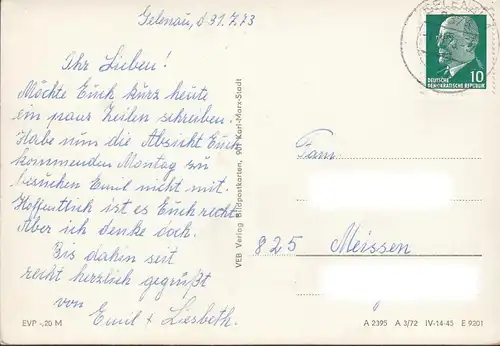 Gelenau, d 31.7.73
Ihr Lieben!
Möchte Euch kurz heute
ein paar Zeilen schreiben.
Habe nun die Absicht Euch
kommenden Montag zu
besuchen Emil nicht mit.
Hoffentlich ist es Euch recht
Aber ich denke doch.
Bis dahin seit
recht herzlich gegrüßt
von
Emil + Liesbeth.
EVP -,20 M
VEB Verlag Bildpostkarten, 901 Karl-Marx-Stadt
GELENAU
10
DEUTSCHE
DEMOKRATISCHE REPUBLIK
Fam.
825 Meissen
A 2395 A 3/72 IV-14-45 E 9201